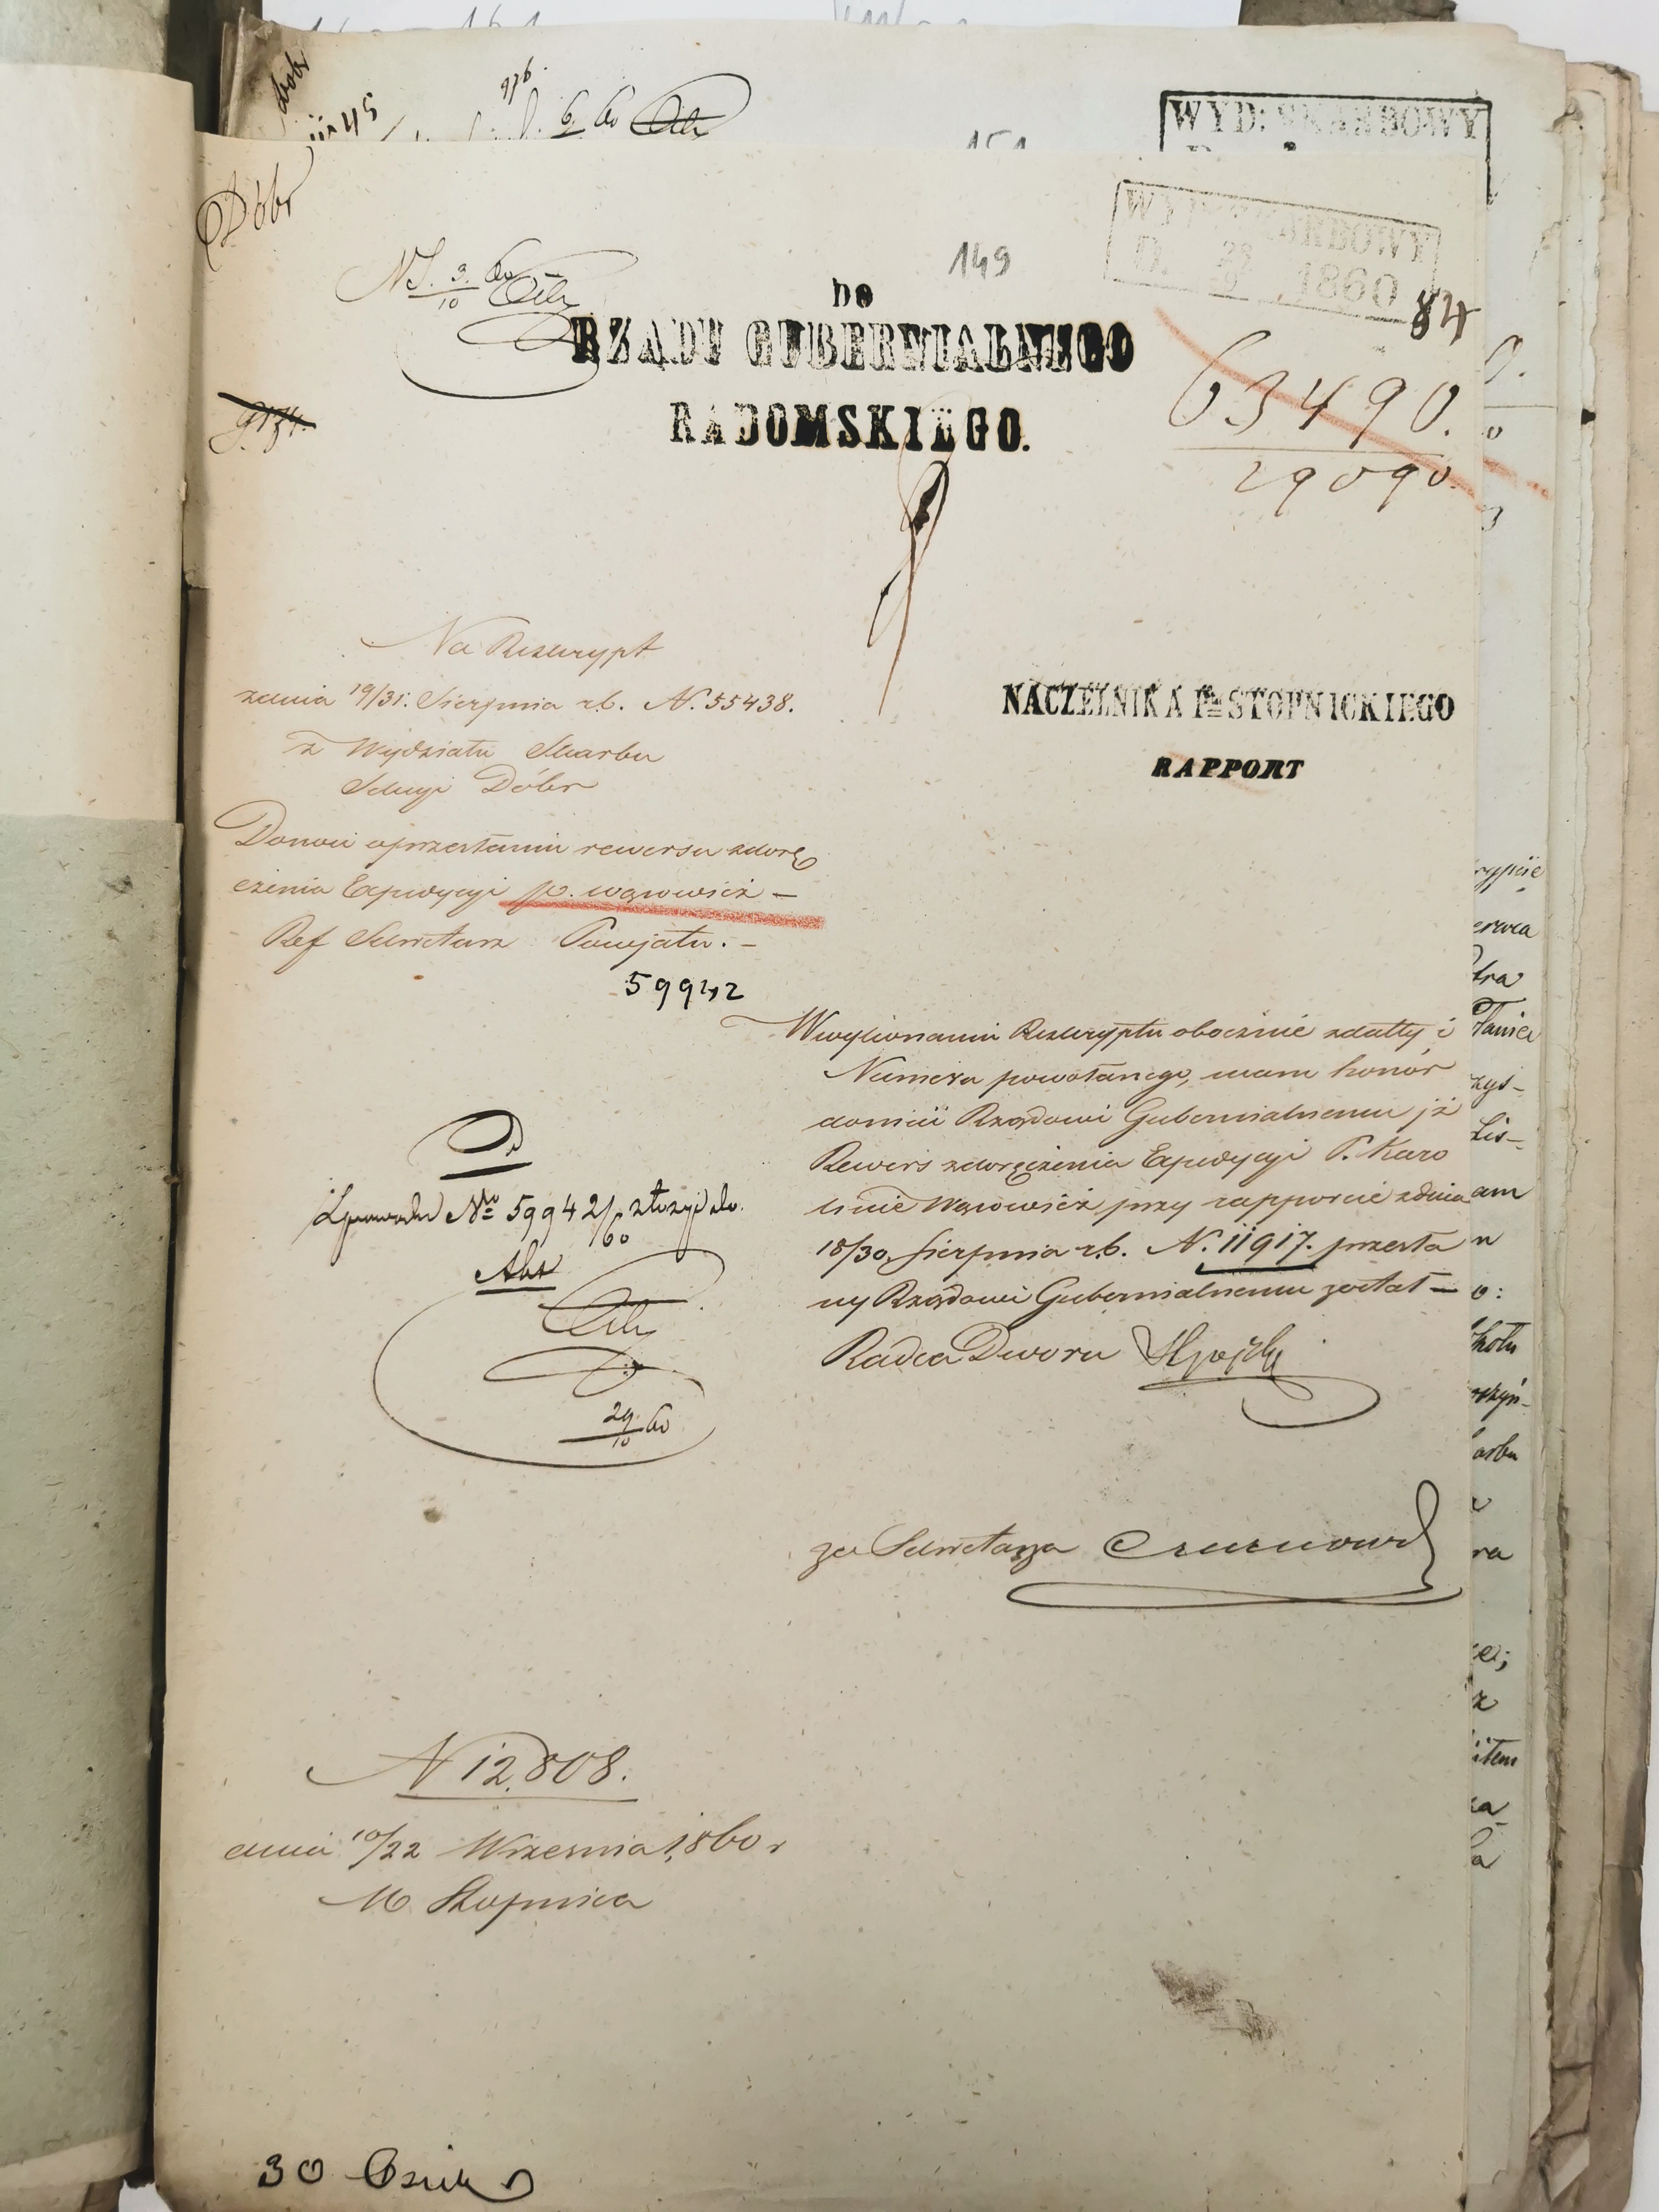 Dóbr
149
WYD: SKARBOWY
WYD: SKARBOWY
D. 28/9 1860
84
do
RZĄDU GUBERNIALNEGO
RADOMSKIEGO.
63490.
29090.
Na Reskrypt
zdnia 19/31. Sierpnia r.b. N. 55438.
z Wydziału Skarbu
Sekcyi Dóbr
Donosi o przesłaniu rewersu zdorę
czenia Expedycyi p. Wąsowicz —
Ref Sekretarz Powiatu. —
59942
NACZELNIKA Ptu STOPNICKIEGO
RAPPORT
W wykonaniu Reskryptu obocznie zdatty i
Numera powołanego, mam honor
donieść Rządowi Gubernialnemu iż
Rewers zdoręczenia Expedycyi P. Karo
linie Wąsowicz przy rapporcie zdnia
18/30 Sierpnia r.b. N. 11917. przesła
ny Rządowi Gubernialnemu został —
Radca Dworu
D
No 59942/60 złożyć do
Akt
29/10 60
za Sekretarza
N 12,808.
dnia 10/22 Września 1860 r
M Stopnica
30